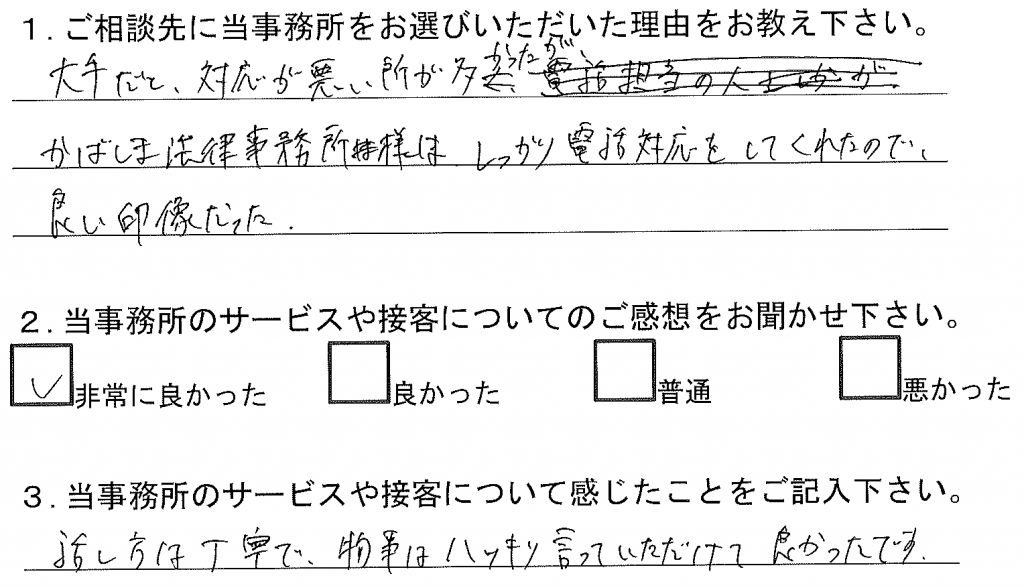 1.ご相談先に当事務所をお選びいただいた理由をお教え下さい。
大手だと、対応が悪い所が多かったが、
かばしま法律事務所様は、しっかり電話対応をしてくれたので、
良い印像だった.
2.当事務所のサービスや接客についてのご感想をお聞かせ下さい。
非常に良かった 良かった 普通 悪かった
3.当事務所のサービスや接客について感じたことをご記入下さい。
話し方は丁寧で、物事はハッキリ言っていただけて良かったです.